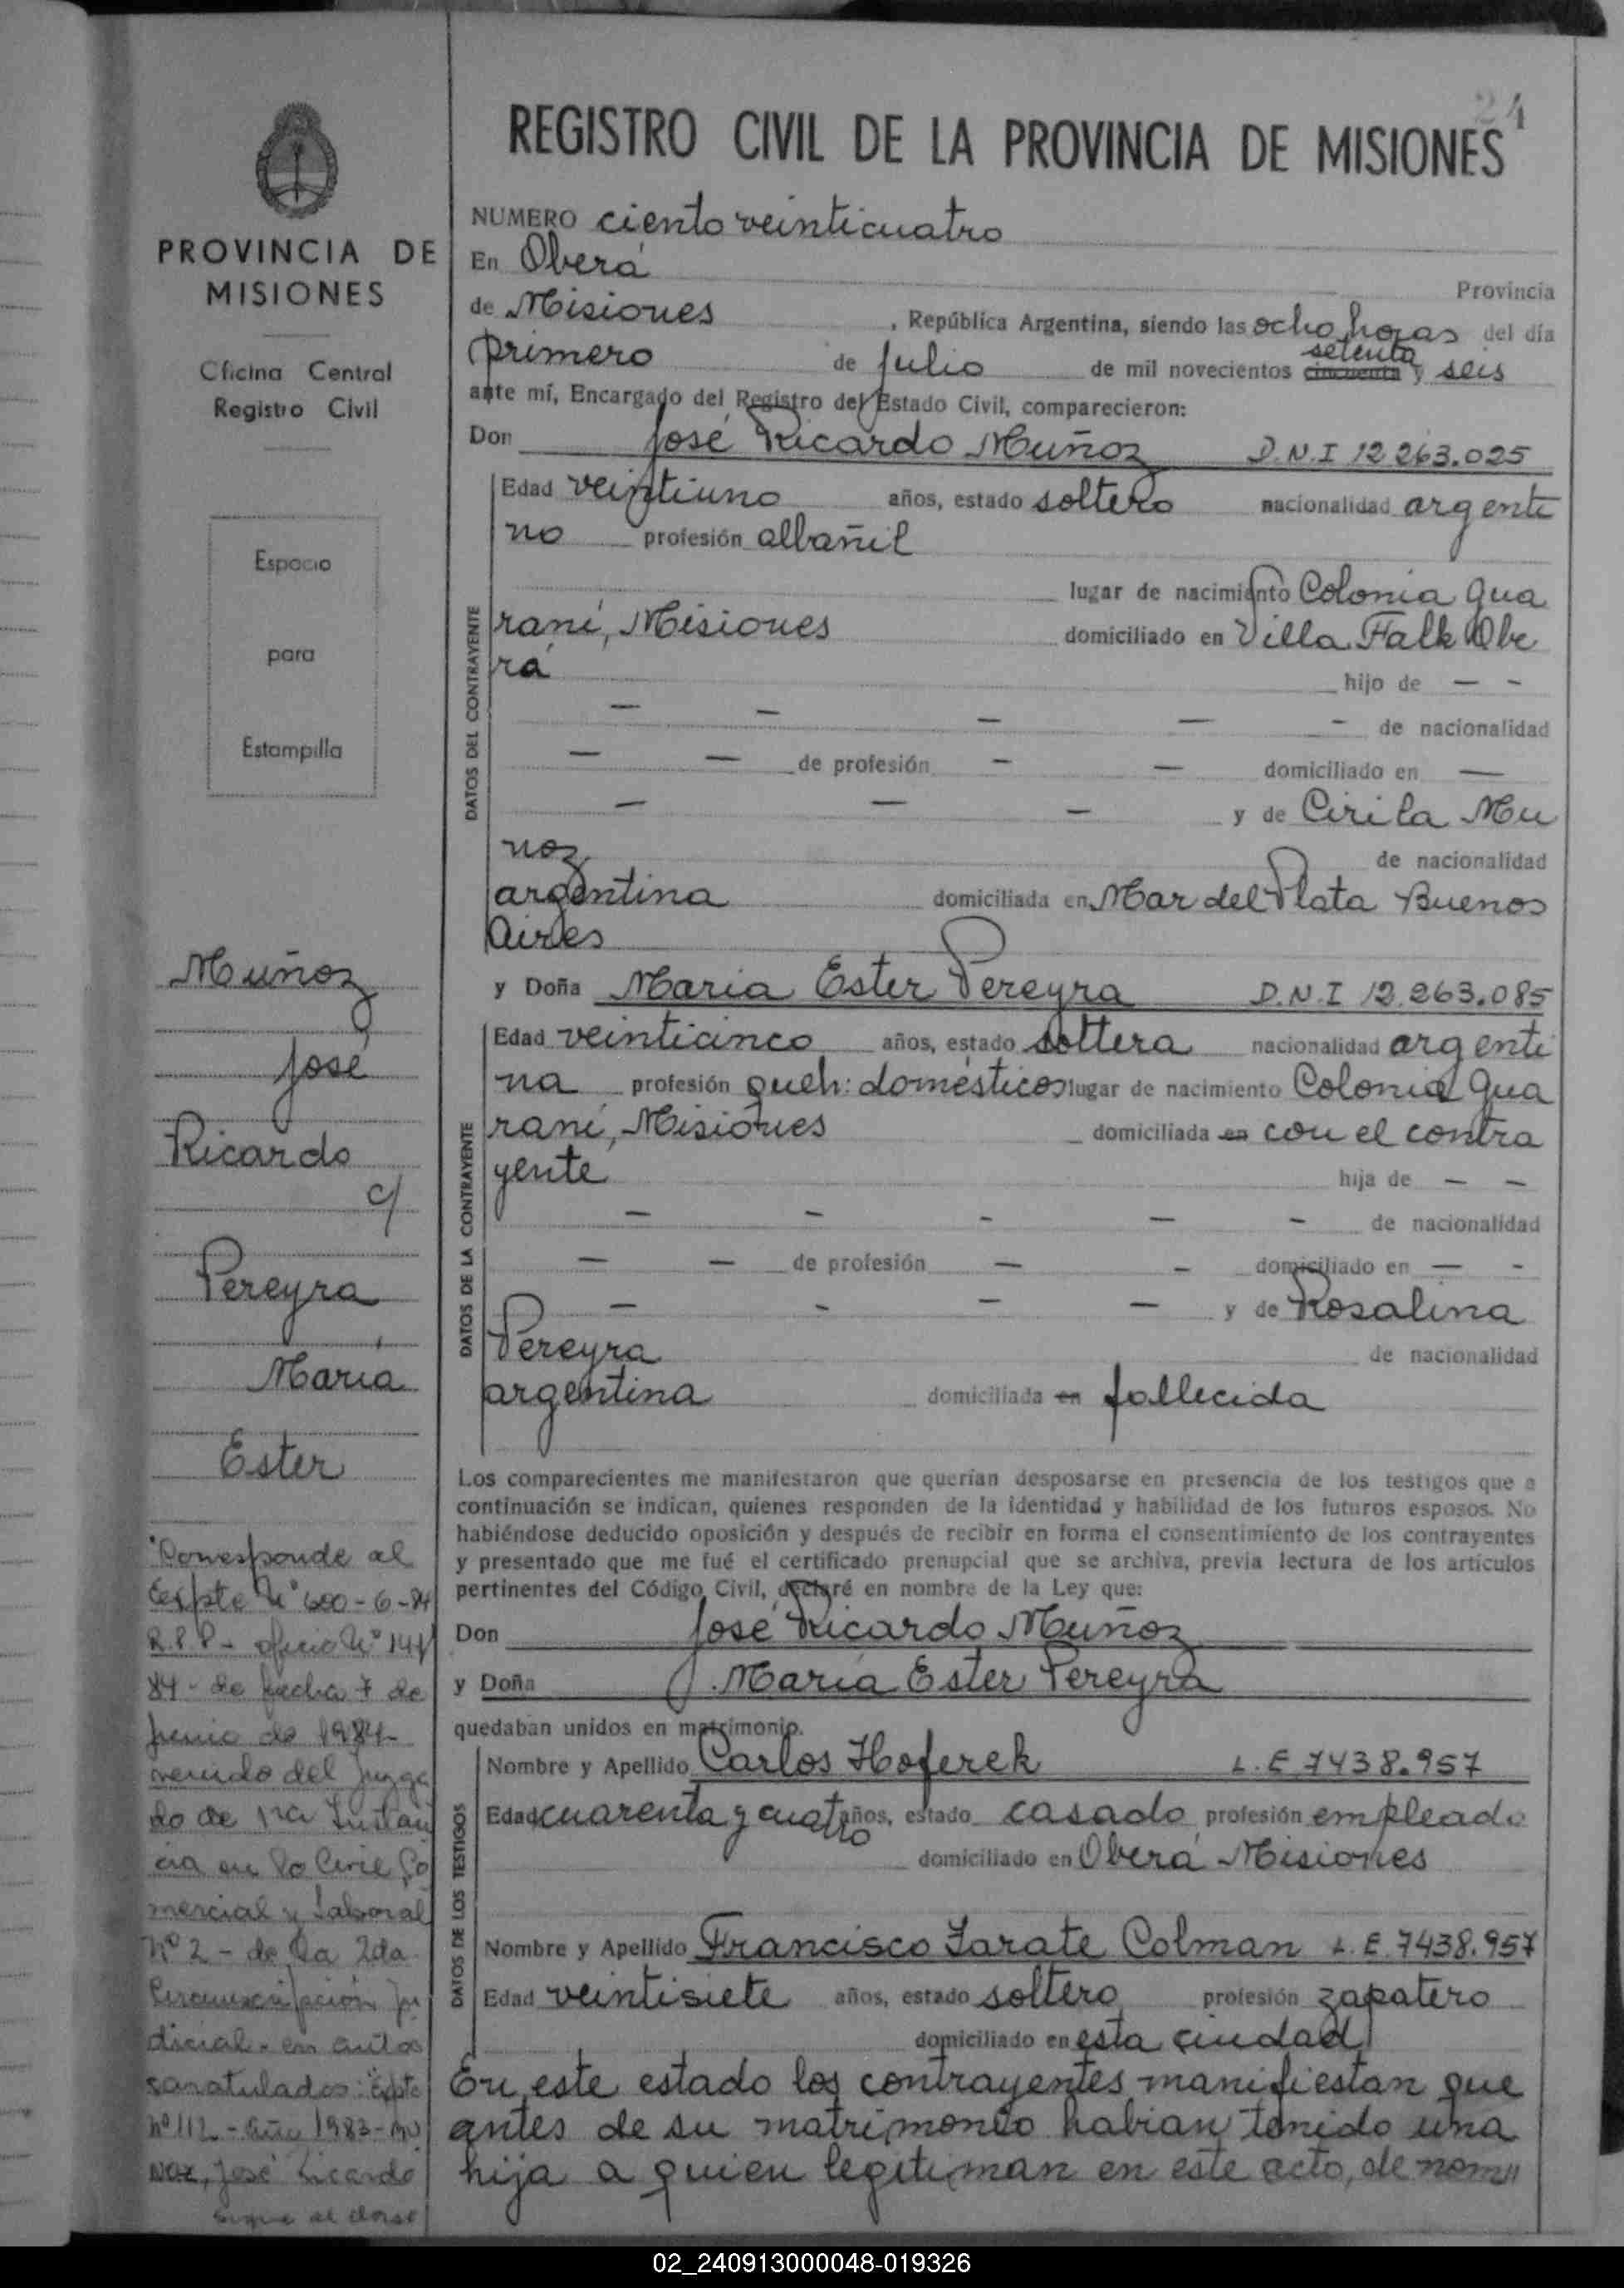 24
REGISTRO CIVIL DE LA PROVINCIA DE MISIONES
PROVINCIA DE
MISIONES
Oficina Central
Registro Civil
Espacio
para
Estampilla
Muñoz
José
Ricardo
c/
Pereyra
María
Ester
Corresponde al
Expte Nº 600-6-84
R.P.P- oficio Nº 141/
84- de fecha 7 de
junio de 1984-
venido del Juzga
do de 1ra Instan
cia en lo Civil Co
mercial y Laboral
Nº 2 - de la 2da
Circunscripción Ju
dicial - en autos
caratulados: Expte
nº 112 - año 1983- Mu
ñoz, José Ricardo
sigue al dorso
NUMERO ciento veinticuatro
En Oberá Provincia
de Misiones , República Argentina, siendo las ocho horas del día
primero de Julio de mil novecientos cincuenta setenta y seis
ante mí, Encargado del Registro del Estado Civil, comparecieron:
Don José Ricardo Muñoz D.N.I 12 263.025
DATOS DEL CONTRAYENTE
Edad veintiuno años, estado soltero nacionalidad argenti
no profesión albañil
lugar de nacimiento Colonia Gua
raní, Misiones domiciliado en Villa Falk Obe
rá hijo de — -
— — — — - de nacionalidad
— — de profesión — — domiciliado en —
— — — y de Cirila Mu
noz de nacionalidad
argentina domiciliada en Mar del Plata Buenos
Aires
y Doña Maria Ester Pereyra D.N.I 12.263.085
DATOS DE LA CONTRAYENTE
Edad veinticinco años, estado soltera nacionalidad argenti
na profesión queh: domésticos lugar de nacimiento Colonia Gua
raní, Misiones domiciliada en con el contra
yente hija de — —
— - - — - de nacionalidad
— — de profesión — - domiciliado en — -
— - — — y de Rosalina
Pereyra de nacionalidad
argentina domiciliada en fallecida
Los comparecientes me manifestaron que querían desposarse en presencia de los testigos que a
continuación se indican, quienes responden de la identidad y habilidad de los futuros esposos. No
habiéndose deducido oposición y después de recibir en forma el consentimiento de los contrayentes
y presentado que me fué el certificado prenupcial que se archiva, previa lectura de los artículos
pertinentes del Código Civil, declaré en nombre de la Ley que:
Don José Ricardo Muñoz
y Doña María Ester Pereyra
quedaban unidos en matrimonio.
DATOS DE LOS TESTIGOS
Nombre y Apellido Carlos Hoferek L.E 7438.957
Edad cuarenta y cuatro años, estado casado profesión empleado
domiciliado en Oberá Misiones
Nombre y Apellido Francisco Zarate Colman L.E. 7438.957
Edad veintisiete años, estado soltero profesión zapatero
domiciliado en esta ciudad
En este estado los contrayentes manifiestan que
antes de su matrimonio habian tenido una
hija a quien legitiman en este acto, de nom"
02_240913000048-019326